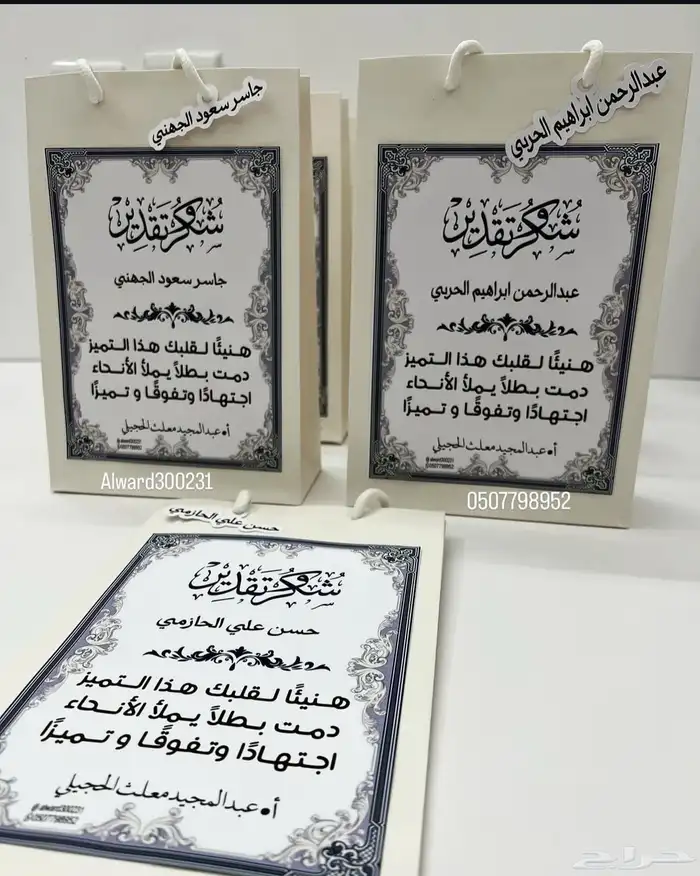 جاسر سعود الجهني
شكر وتقدير
جاسر سعود الجهني
هنيئًا لقلبك هذا التميز
دمت بطلاً يملأ الأنحاء
اجتهادًا وتفوقًا و تميزًا
أ. عبدالمجيد معلث الحجيلي
Alward300231
عبدالرحمن ابراهيم الحربي
شكر وتقدير
عبدالرحمن ابراهيم الحربي
هنيئًا لقلبك هذا التميز
دمت بطلاً يملأ الأنحاء
اجتهادًا وتفوقًا و تميزًا
أ. عبدالمجيد معلث الحجيلي
alward300231
0507798952
0507798952
حسن علي الحازمي
شكر وتقدير
حسن علي الحازمي
هنيئًا لقلبك هذا التميز
دمت بطلاً يملأ الأنحاء
اجتهادًا وتفوقًا و تميزًا
أ. عبدالمجيد معلث الحجيلي
alward300231
0507798952
حراج